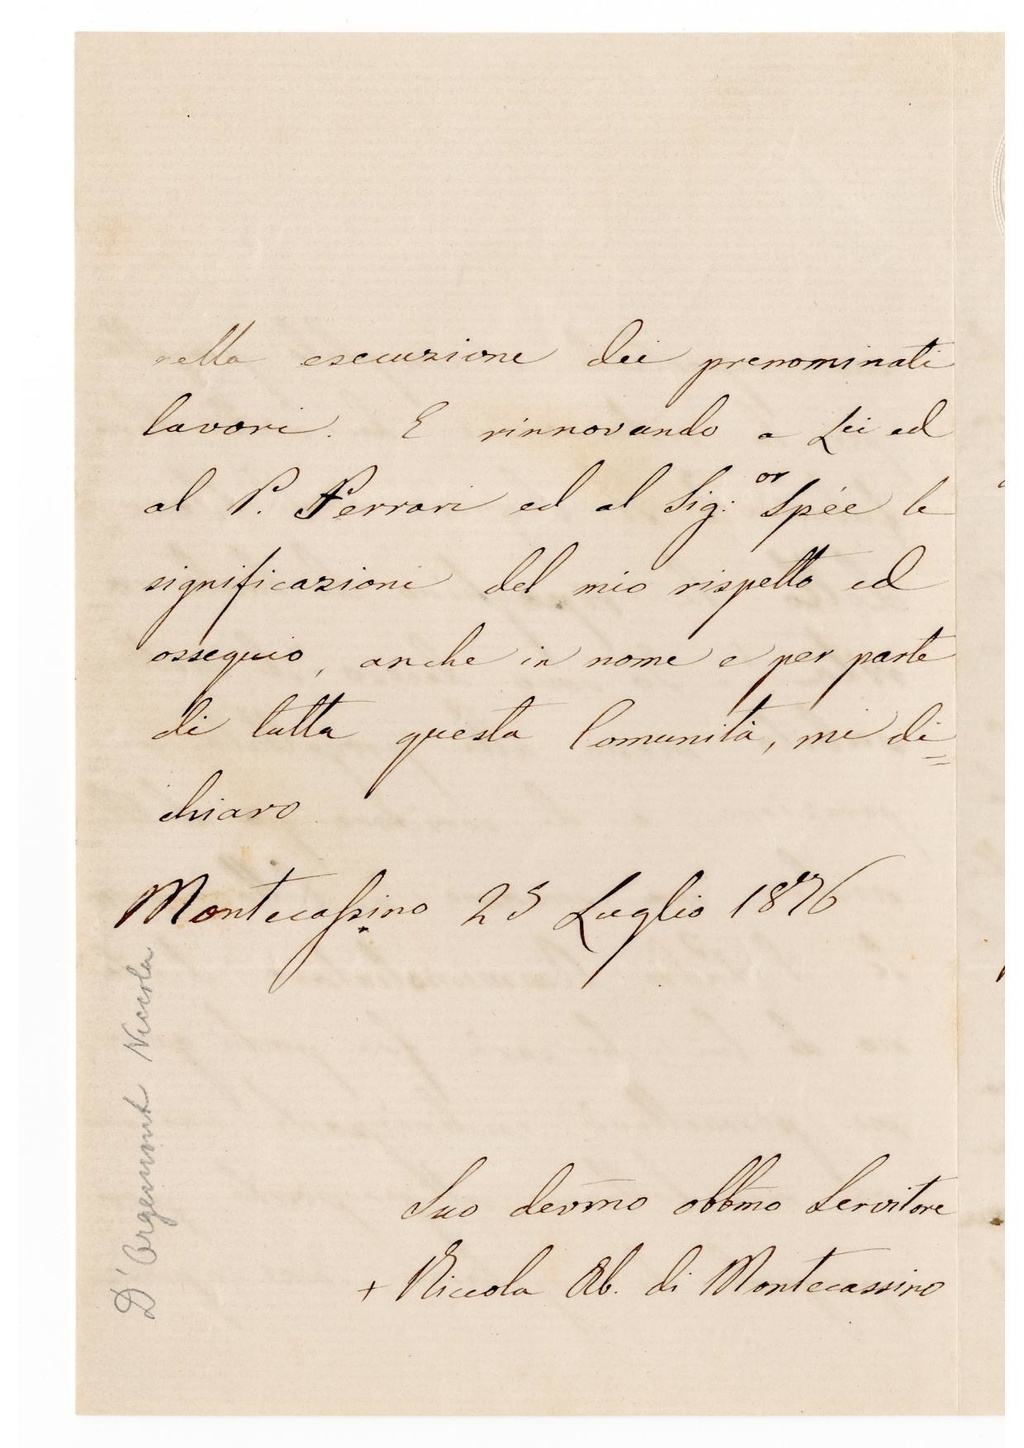 nella esecuzione dei prenominati
lavori. E rinnovando a Lei ed
al P. Ferrari ed al Sig:or Spée le
significazioni del mio rispetto ed
ossequio, anche in nome e per parte
di tutta questa Comunità, mi di=
chiaro
Montecassino 25 Luglio 1876
Suo devmo obbmo Servitore
+ Niccola Ab. di Montecassino
D'Orgemont Niccola